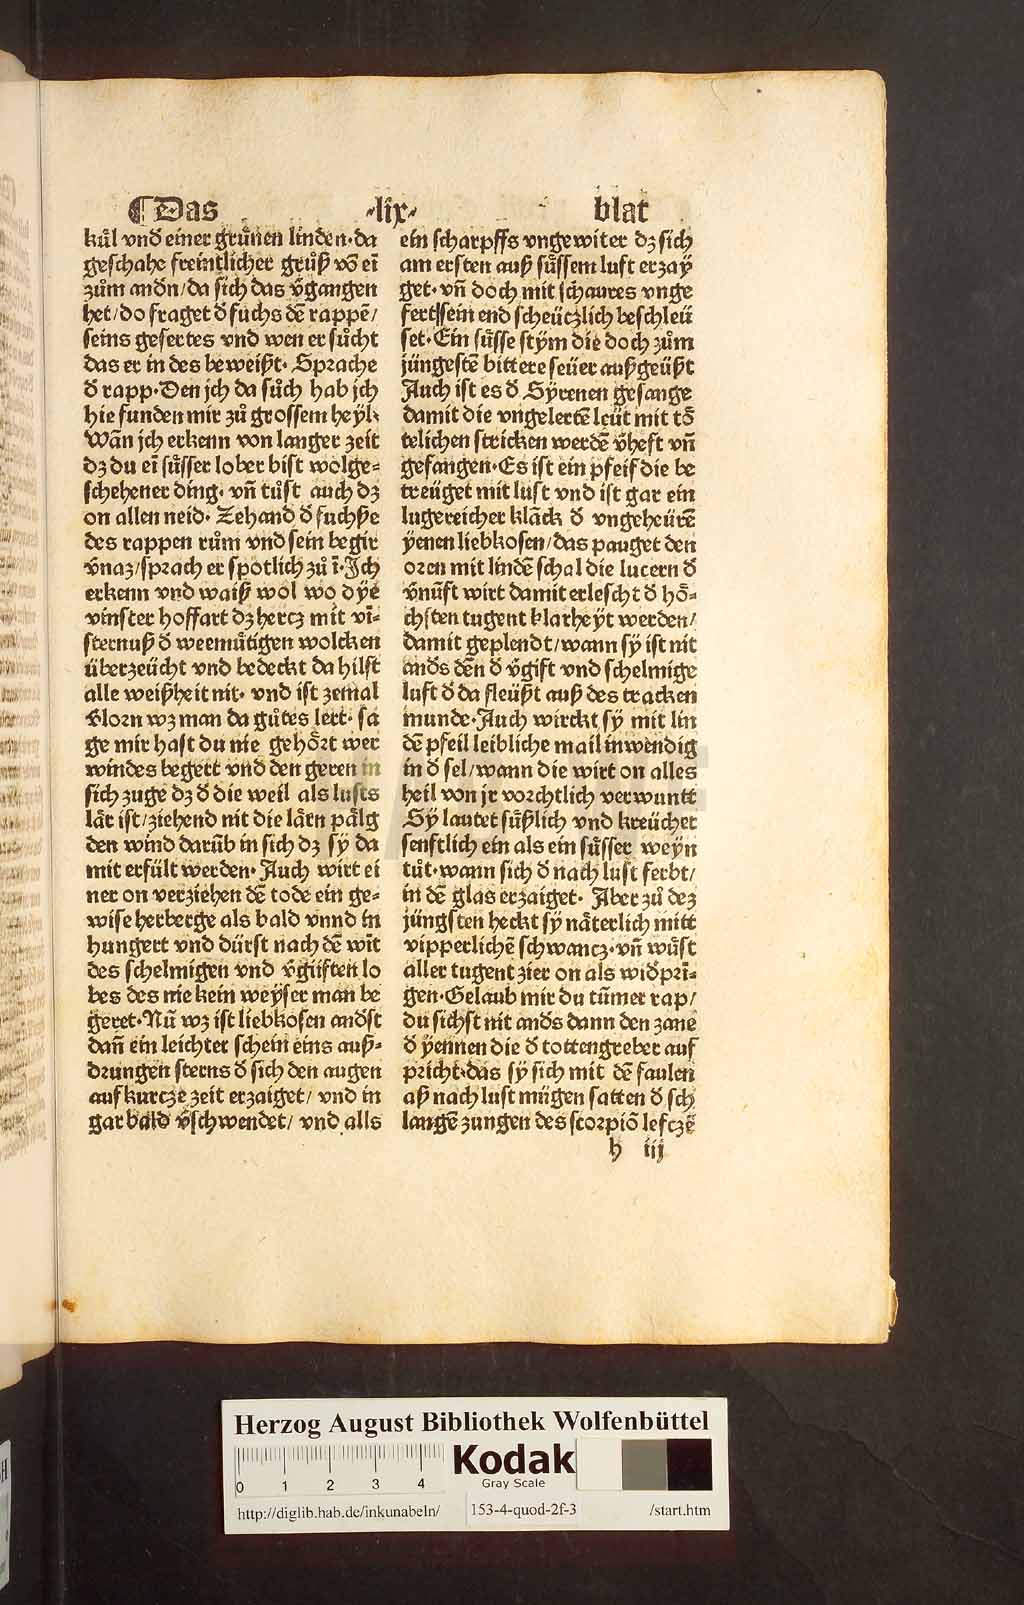 ⸿ Das ·lix· blat
kuͤl vnd einer gruͤnen linden· da
geschahe freintlicher gruͤß võ eĩ
zuͦm andn̄/ da sich das v̄gangen
het/ do fraget d̄ fuchs dē rappē/
seins gefertes vnd wen er suͦcht
das er in des beweißt· Sprache
d̄ rapp· Den jch da suͦch hab jch
hie funden mir zuͦ grossem heyl·
Wañ jch erkenn von langer zeit
dz du eĩ suͤsser lober bist wolge⸗
schehener ding· vñ tuͦst auch dz
on allen neid· Zehand d̄ fuchße
des rappen ruͦm vnd sein begir
v̄naz/ sprach er spotlich zuͦ ĩ· Jch
erkenn vnd waiß wol wo dÿe
vinster hoffart dz hercz mit vĩ⸗
sternuß d̄ weemuͤtigen wolcken
überzeücht vnd bedeckt da hilft
alle weißheit nit· vnd ist zemal
v̄lorn wz man da guͦtes lert· sa
ge mir hast du nie gehoͤrt wer
windes begert vnd den geren in
sich zuge dz d̄ die weil als lusts
laͤr ist/ ziehend nit die laͤrn paͤlg
den wind darūb in sich dz sÿ da
mit erfült werden· Auch wirt ei
ner on verziehen dē tode ein ge⸗
wise herberge als bald vnnd in
hungert vnd dürst nach dē wīt
des schelmigen vnd v̄giiften lo
bes des nie kein weÿser man be
geret· Nū wz ist liebkosen andst̄
dañ ein leichter schein eins auß⸗
drungen sterns d̄ sich den augen
auf kurcze zeit erzaiget/ vnd in
gar bald v̄schwendet/ vnd alls
ein scharpffs vngewiter dz sich
am ersten auß suͤssem luft erzaÿ
get· vñ doch mit schaures vnge
fert sein end scheüczlich beschleü
set· Ein suͤsse stÿm die doch zuͦm
jüngestē bittere seüer außgeüßt
Auch ist es d̄ Sÿrenen gesange
damit die vngelertē leüt mit tō
telichen stricken werdē v̄heft vñ
gefangen· Es ist ein pfeif die be
treüget mit lust vnd ist gar ein
lugereicher klāck d̄ vngeheürē
ÿenen liebkosen/ das pauget den
oren mit lindē schal die lucern d̄
v̄nūft wirt damit erlescht d̄ hoͤ⸗
chsten tugent klarheÿt werden/
damit geplendt/ wann sÿ ist nit
andˉs dēn d̄ v̄gift vnd schelmige
luft d̄ da fleüßt auß des tracken
munde· Auch wirckt sÿ mit lin
dē pfeil leibliche mail inwendig
in d̄ sel/ wann die wirt on alles
heil von jr vorchtlich verwuntt
Sÿ lautet suͤßlich vnd kreüchet
senftlich ein als ein suͤsser weÿn
tuͦt· wann sich d̄ nach lust ferbt/
in dē glas erzaiget· Aber zuͦ dez
jüngsten heckt sÿ naͤterlich mitt
vipperlichē schwancz· vñ wuͤst
aller tugent zier on als wid̄prī⸗
gen· Gelaub mir du tūmer rap/
du sichst nit andˉs dann den zane
d̄ ÿennen die d̄ tottengreber auf
pricht· das sÿ sich mit dē faulen
aß nach lust mügen satten d̄ sch
langē zungen des scorpiō lefczē
h iij
Herzog August Bibliothek Wolfenbüttel
0 1 2 3 4
Kodak
Gray Scale
http://diglib.hab.de/inkunabeln/ 153-4-quod-2f-3 /start.htm